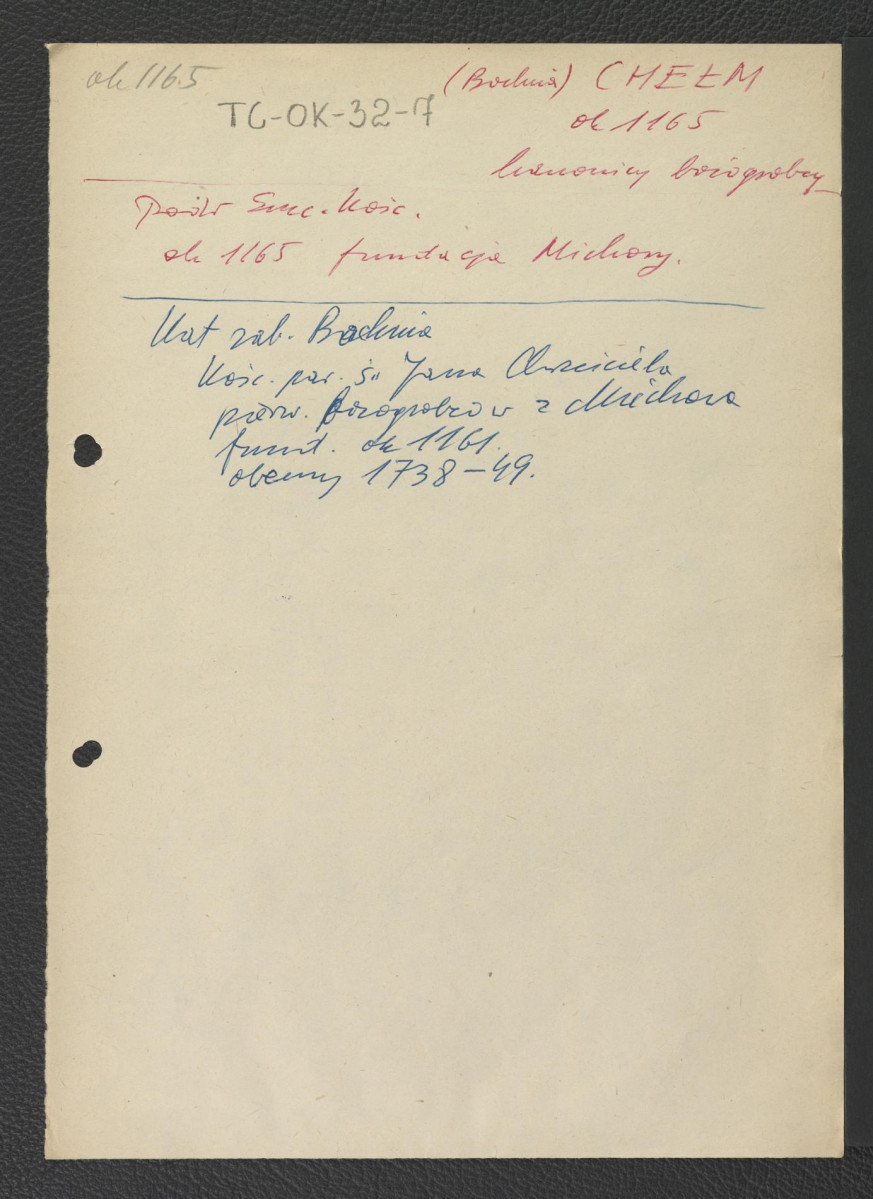 ok 1165
TC-OK-32-7
(Bochnia) CHEŁM
ok 1165
kanonicy bożogrobcy
Kośc.
ok 1165 fundacja Miechowy.
Kat zab. Bochnia
Kośc. par. św Jana Chrzciciela
pierw. Bożogrobców z Miechowa
fund. ok 1161.
obecny 1738-49.